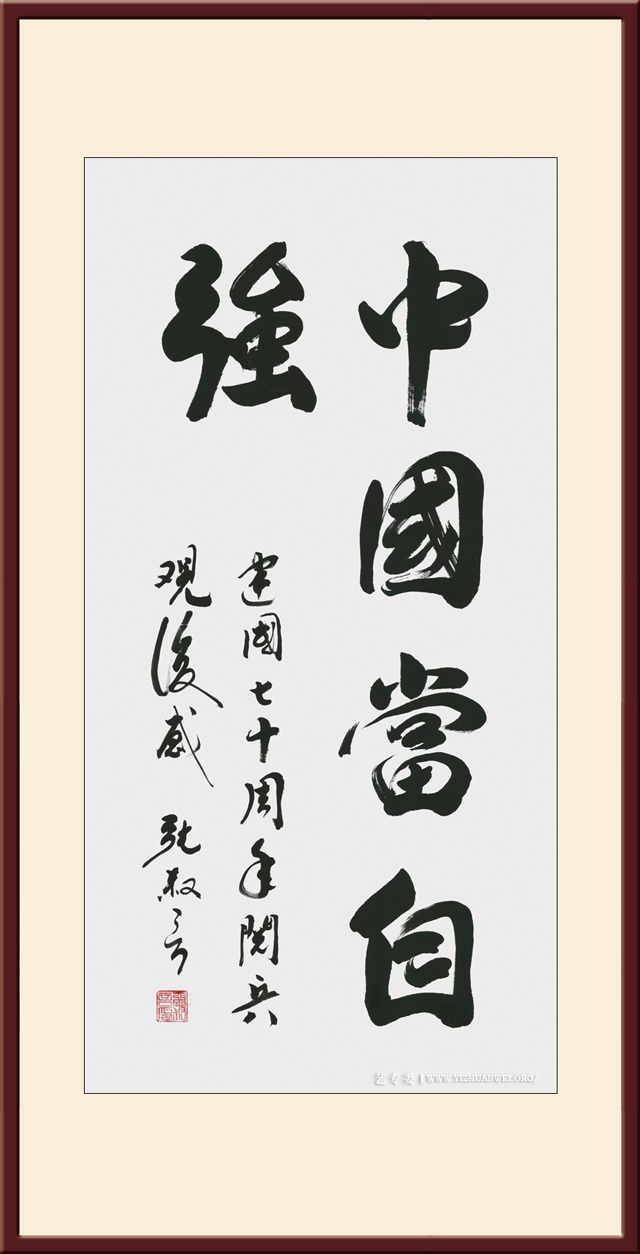 中國當自
強
建國七十周年閱兵
观後感
艺专委 | WWW.YIZHUANWEI.ORG/